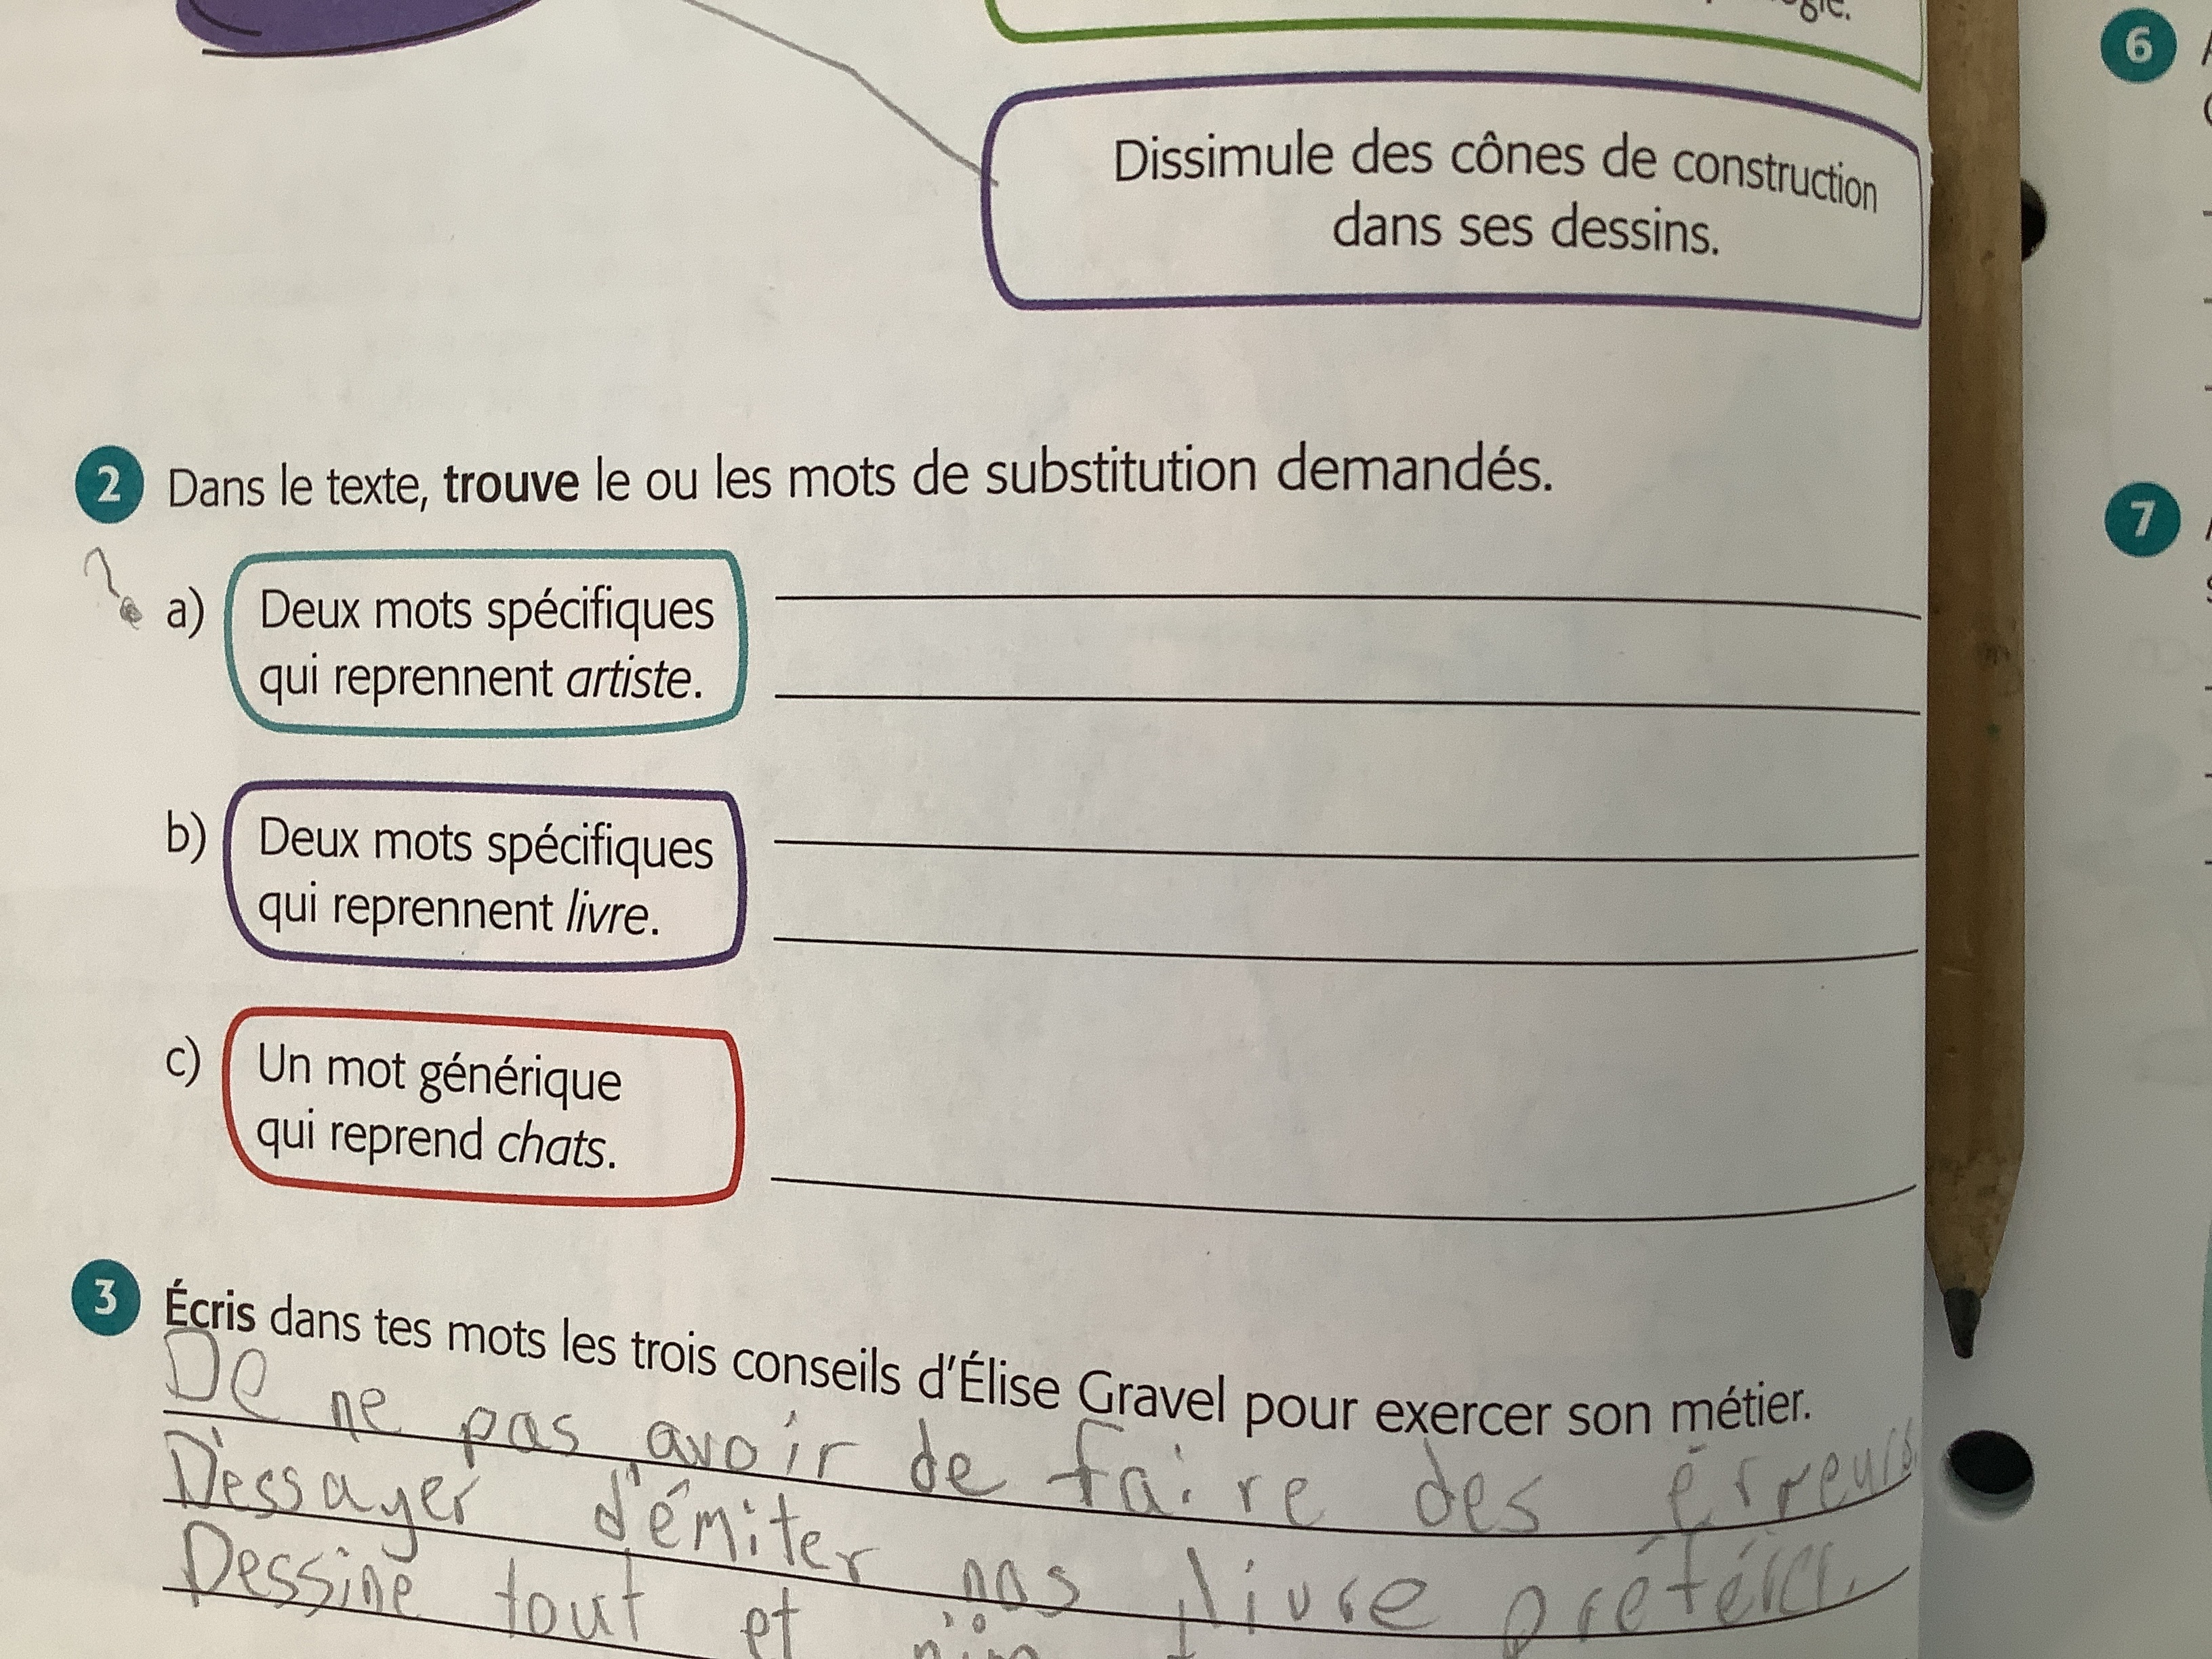 Dissimule des cônes de construction
dans ses dessins.
6
2 Dans le texte, trouve le ou les mots de substitution demandés.
7
? a) Deux mots spécifiques
qui reprennent artiste.
b) Deux mots spécifiques
qui reprennent livre.
c) Un mot générique
qui reprend chats.
3 Écris dans tes mots les trois conseils d'Élise Gravel pour exercer son métier.
De ne pas avoir de faire des érreurs
D'essayer d'émiter nos livre préférer.
Dessine tout et